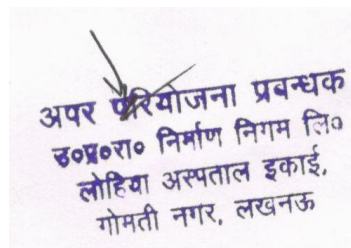 अपर परियोजना प्रबन्धक
उ०प्र०रा० निर्माण निगम लि०
लोहिया अस्पताल इकाई,
गोमती नगर, लखनऊ